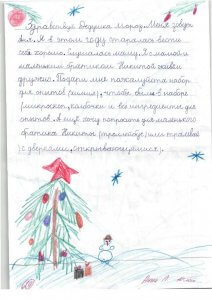 Здравствуй Дедушка Мороз. Меня зовут
Аня. Я в этом году старалась вести
себя хорошо. Слушалась маму. Я с мамой и
маленьким братиком Никитой живем
дружно. Подари мне пожалуйста набор
для опытов (химии), чтобы были в наборе
(микроскоп, колбочки и все ингредиенты для
опытов). Я ещё хочу попросить для маленького
братика Никиты (троллейбус) или трамвай)
(с дверками, открывающимися).
Анна